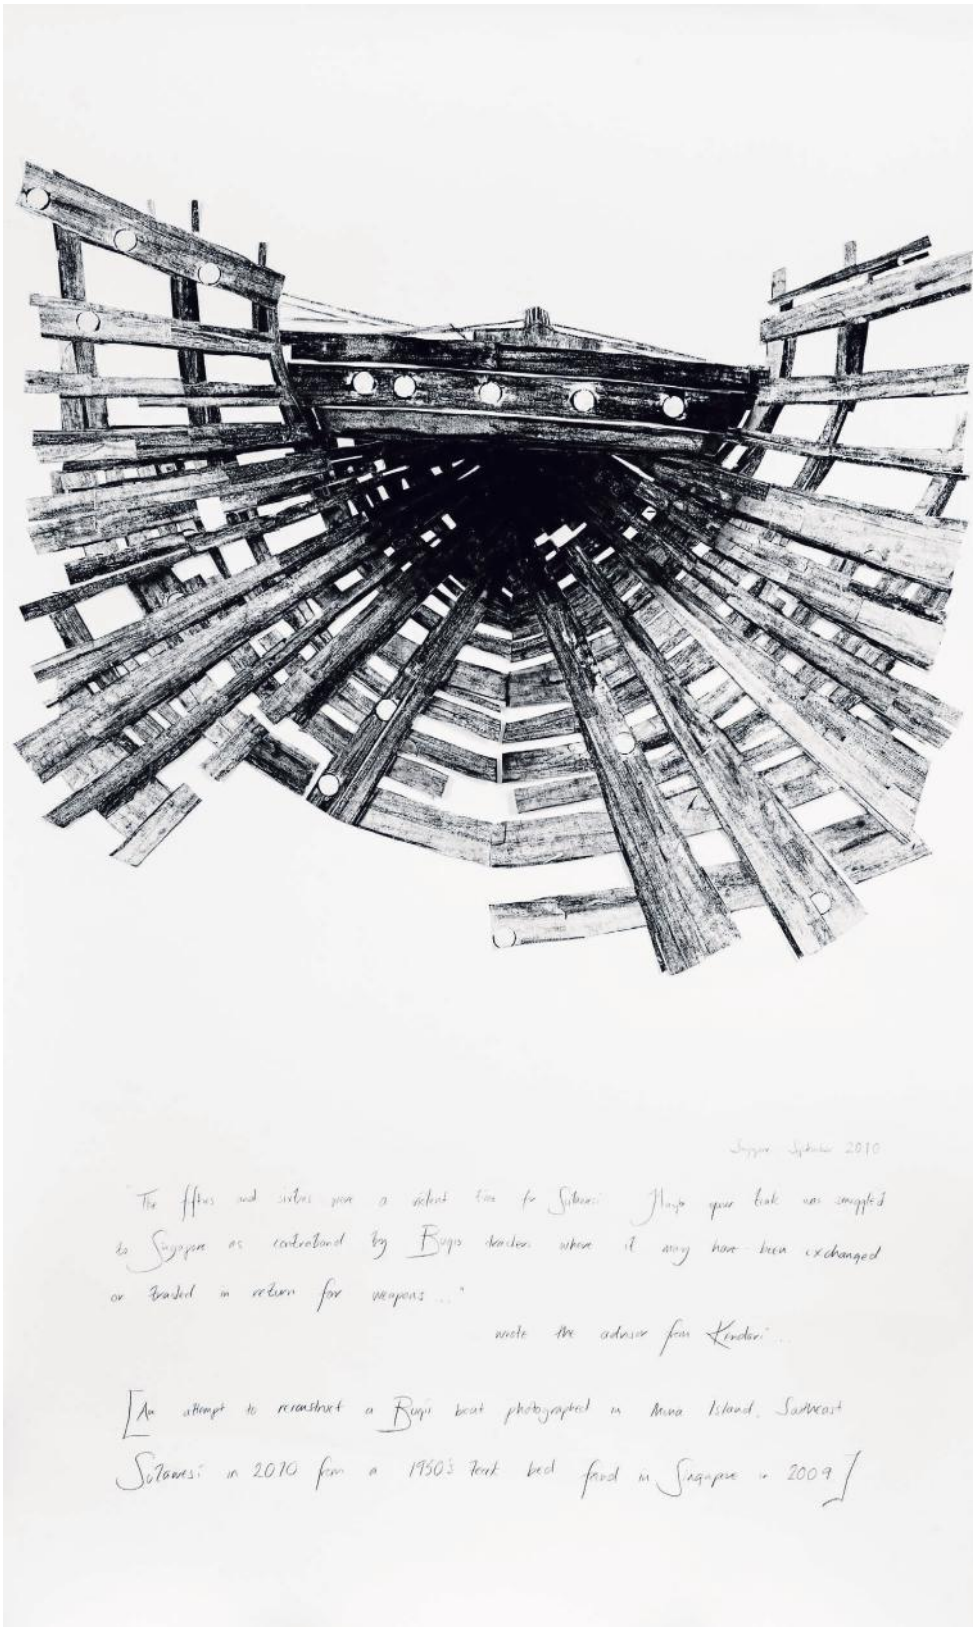 Singapore September 2010
"The fifties and sixties were a violent time for Sulawesi. Huge teak was smuggled
to Singapore as contraband by Bugis traders where it may have been exchanged
or traded in return for weapons..."
wrote the advisor from Kendari...
[An attempt to reconstruct a Bugis boat photographed in Muna Island, Southeast
Sulawesi in 2010 from a 1950's teak bed found in Singapore in 2009]